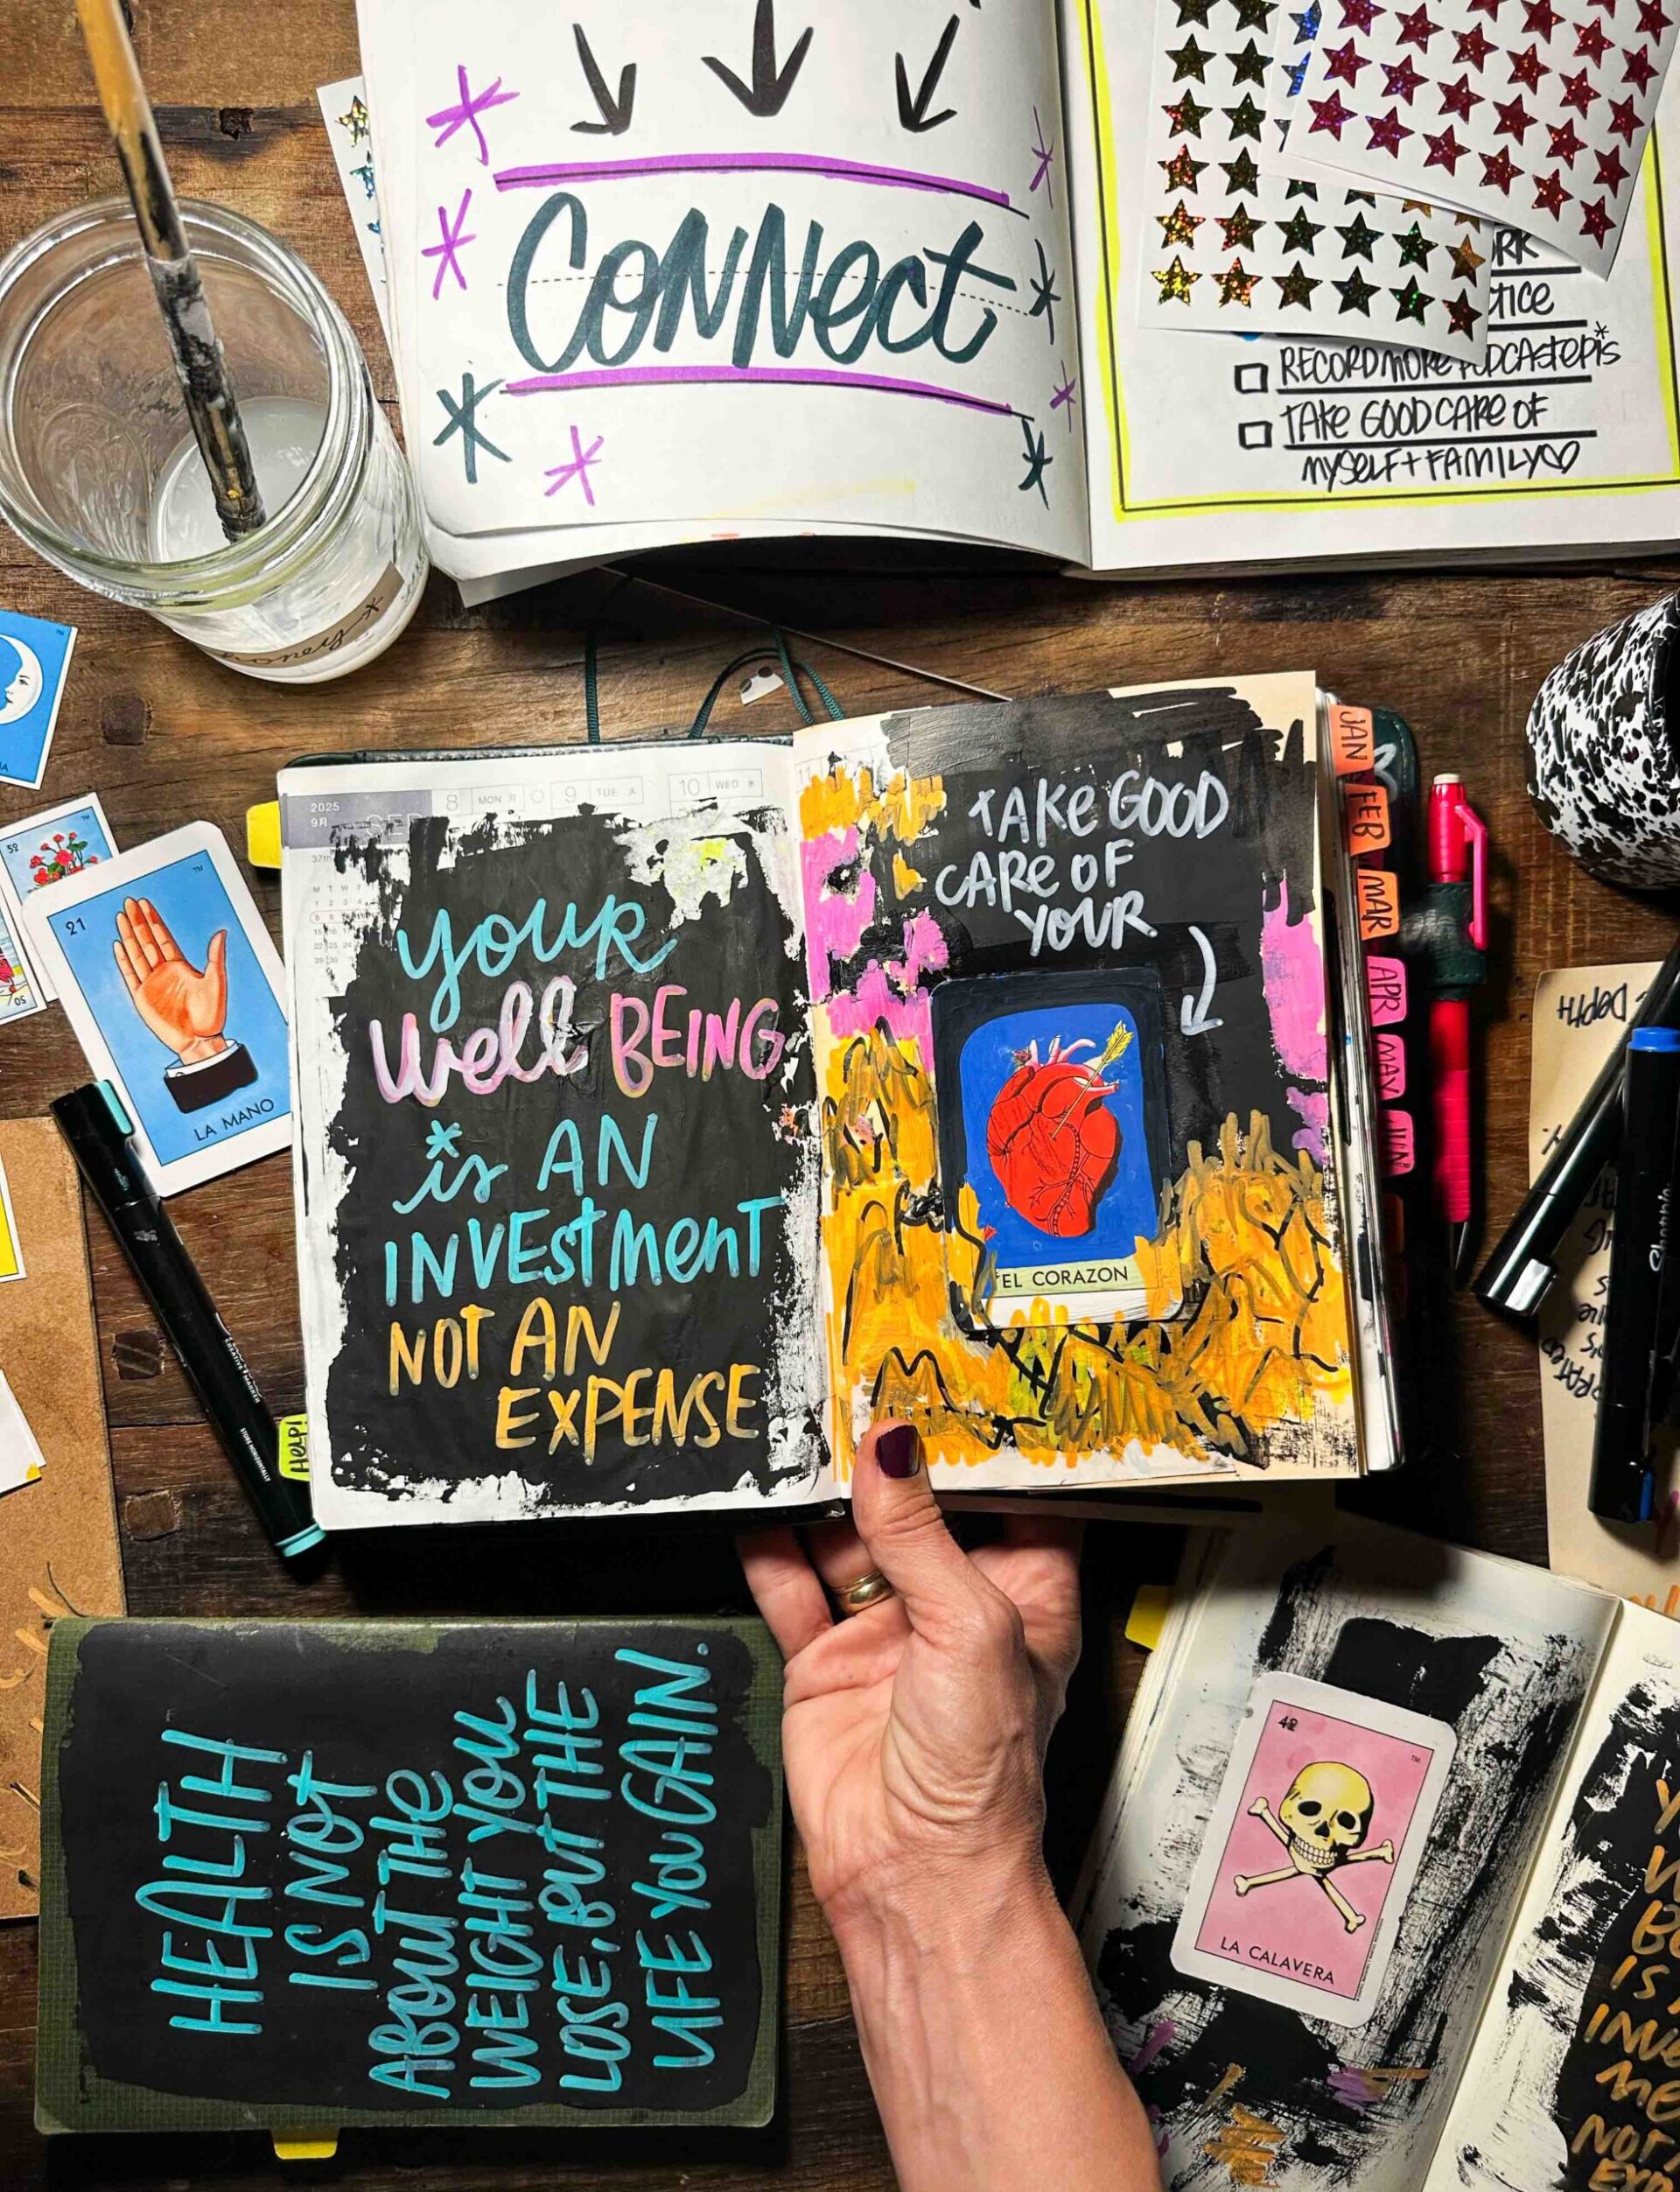 CONNect
RK
ctice
RECORD MORE PODCAST epis*
TAKE GOOD CARE OF
MYSELF + FAMILY♡
honey*
2025
9月
SEP
8 MON 9 TUE 10 WED
37th
M T W T
11
YOUR
Well BEING
is AN
INVEstMenT
NOT AN
EXPENSE
TAKe GOOD
CARe OF
YOUR
EL CORAZON
JAN
FEB
MAR
APR
MAY
JUN
HeLP!
52
50
21
™
LA MANO
CREATIVE MARKER
STORE HORIZONTALLY
DEPTH
Sharpie
HEALTH
IS NOT
ABOUT THE
WEIGHT YOU
LOSE, BUT THE
LIFE YOU GAIN.
42
™
LA CALAVERA
Y
W
Be
IS
INVe
Me
NOT
EXP